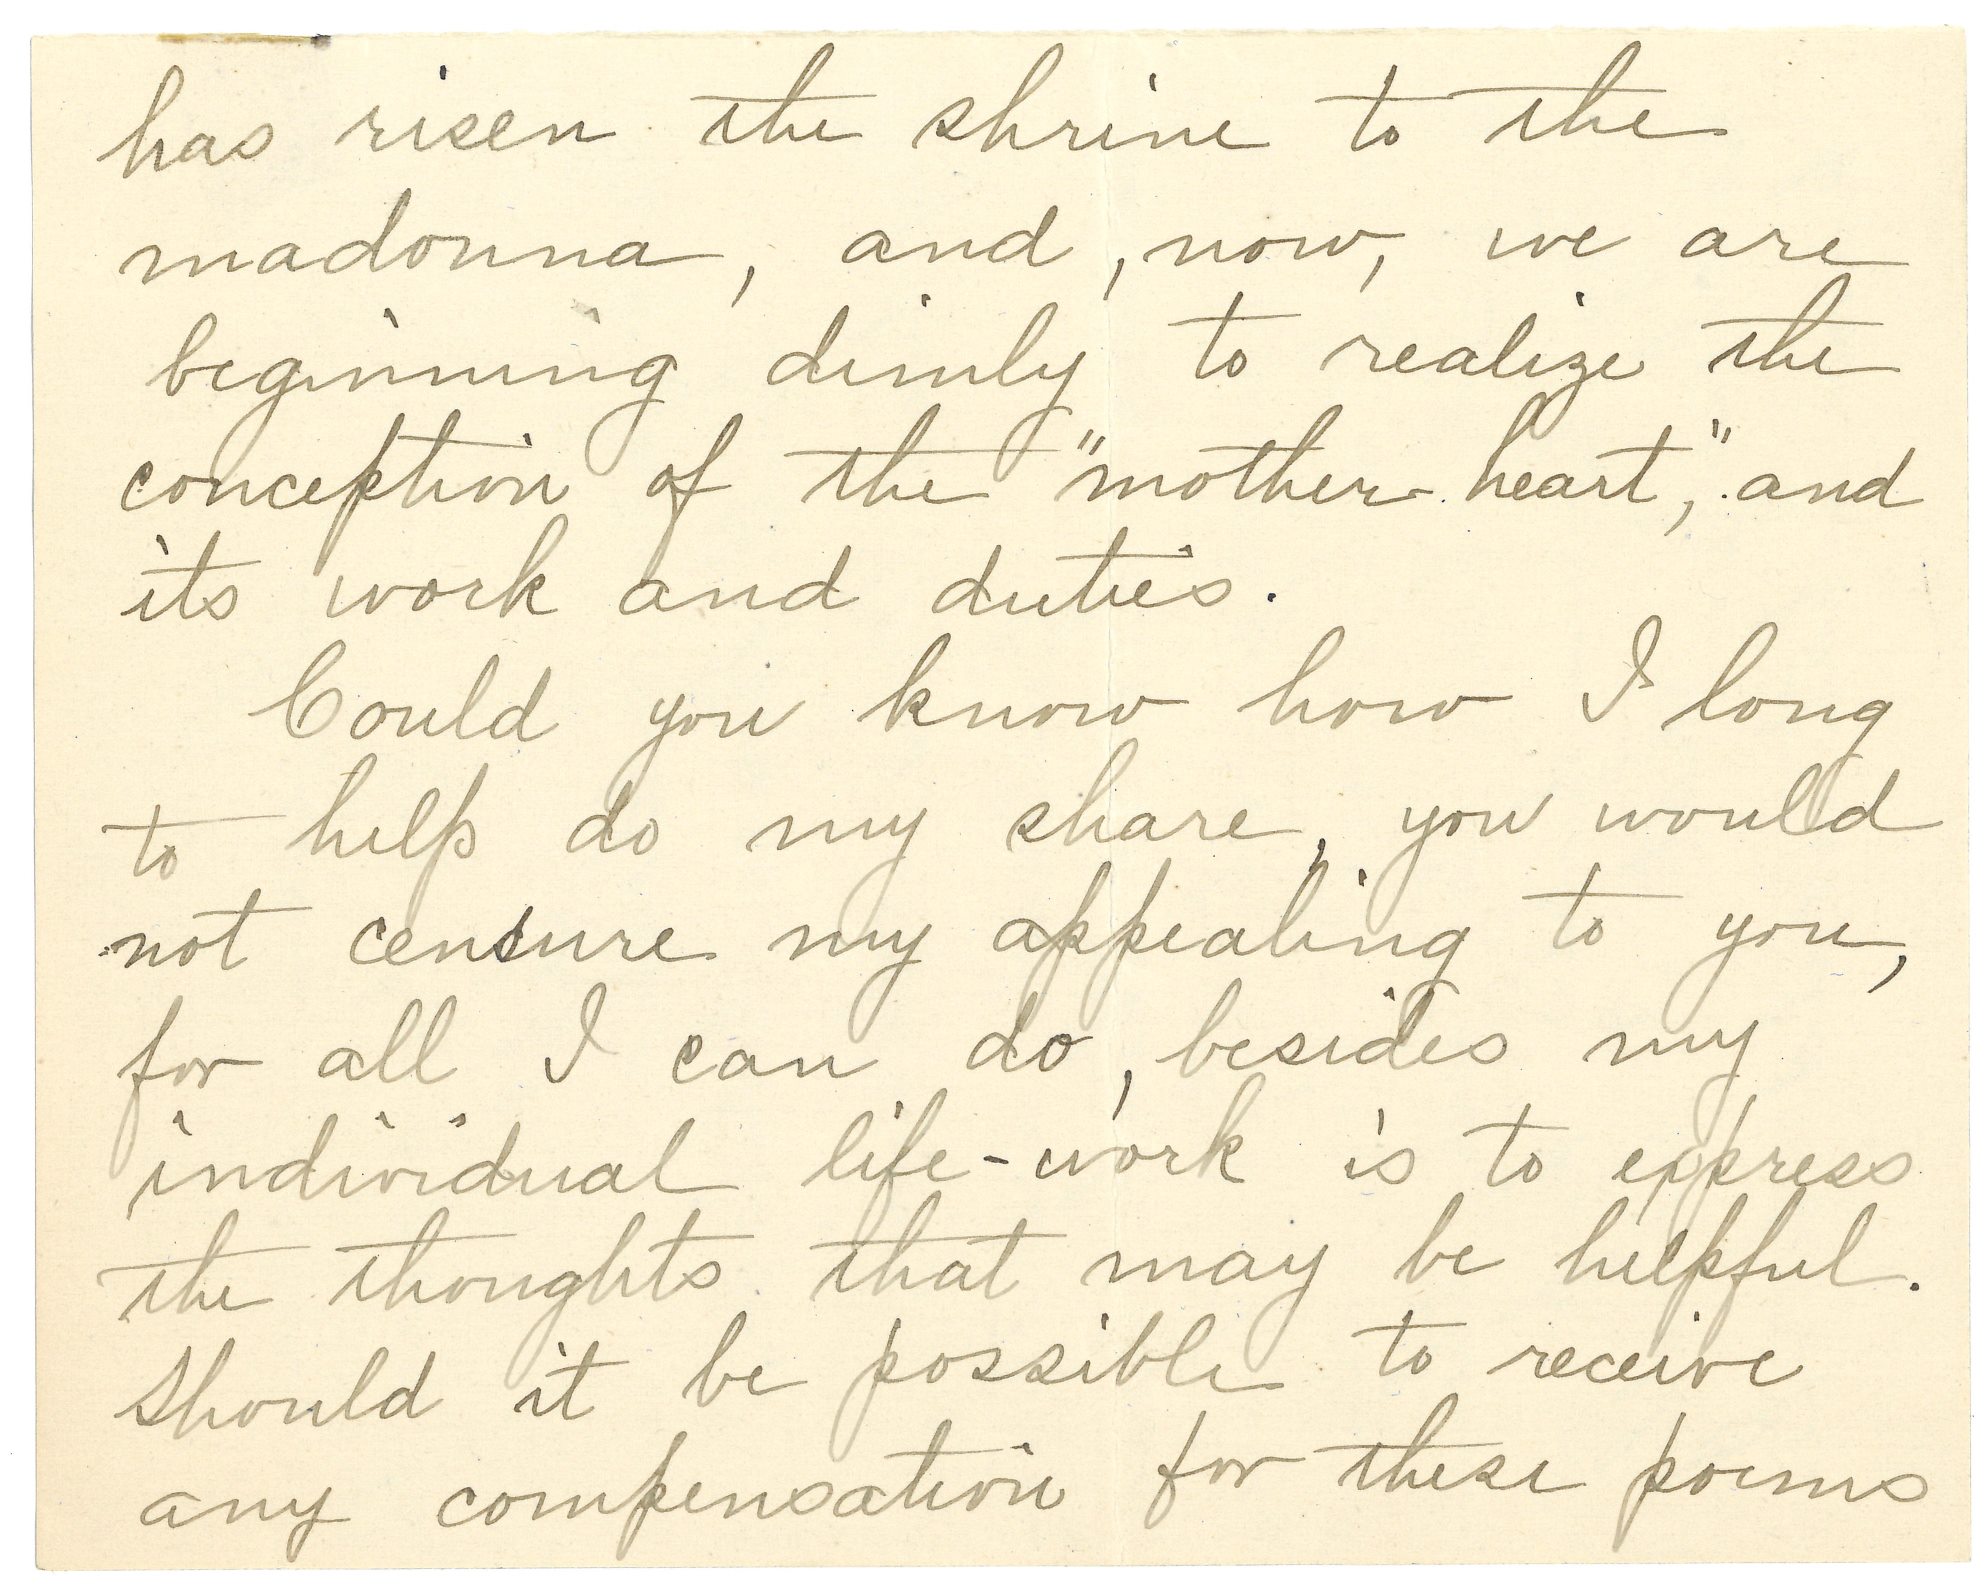 has risen the shrine to the
madonna, and, now, we are
beginning dimly to realize the
conception of the "mother heart," and
its work and duties.
Could you know how I long
to help do my share, you would
not censure my appealing to you,
for all I can do, besides my
individual life-work is to express
the thoughts that may be helpful.
Should it be possible to receive
any compensation for these poems